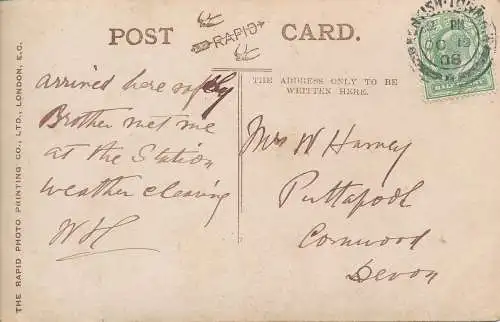 POST CARD.
RAPID
THE ADDRESS ONLY TO BE
WRITTEN HERE.
arrived here safely
Brother met me
at the Station
weather clearing
W H
Mrs W Harvey
Puttapool
Cornwood
Devon
THE RAPID PHOTO PRINTING CO., LTD., LONDON, E.C.
OC 19
08